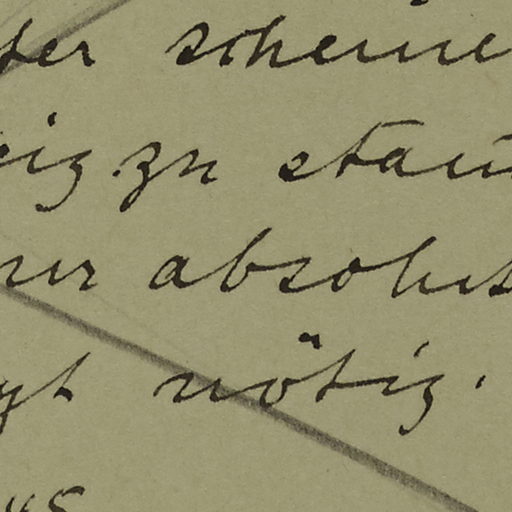 ter scheine
eig zu stau
ur absolut
gt nötig.